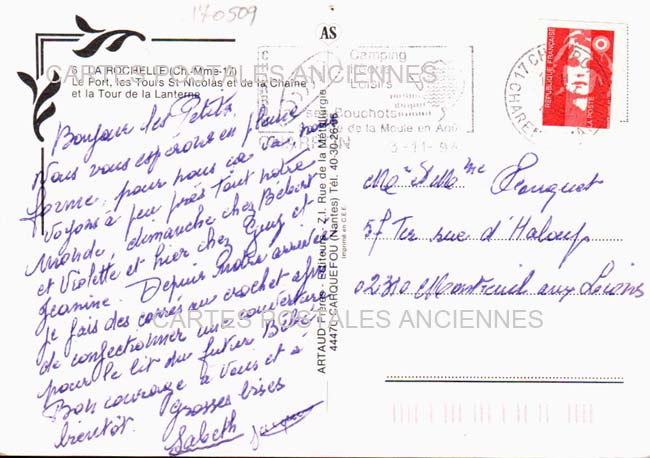 170509
AS
6 - LA ROCHELLE (Ch.-Mme-17)
Le Port, les Tours St Nicolas et de la Chaîne
et la Tour de la Lanterne
CARTES POSTALES ANCIENNES
Bonjour les Petits,
Nous vous espérons en pleine
forme, pour nous ça va, nous
voyons à peu près tout notre
monde, dimanche chez Bébert
et Violette et hier chez Guy et
Jeanine. Depuis notre arrivée
je fais des carrés au crochet afin
de confectionner une couverture
pour le lit du futur Bébé.
Bon courage à vous et à
bientôt. Grosses bises
Babeth
ARTAUD Frères - Editeurs - Z.I. Rue de la Métallurgie
44470 CARQUEFOU (Nantes) Tél. 40-30-26-96
Imprimé en C.E.E.
Camping
Loisirs
Bouchots
de la Moule en Août
3-11-94
17 CH
CHAREN
REPUBLIQUE FRANÇAISE
LA POSTE
Mr et Mme Pouquet
5F Ter rue d'
02310 Montreuil aux Lions
CARTES POSTALES ANCIENNES